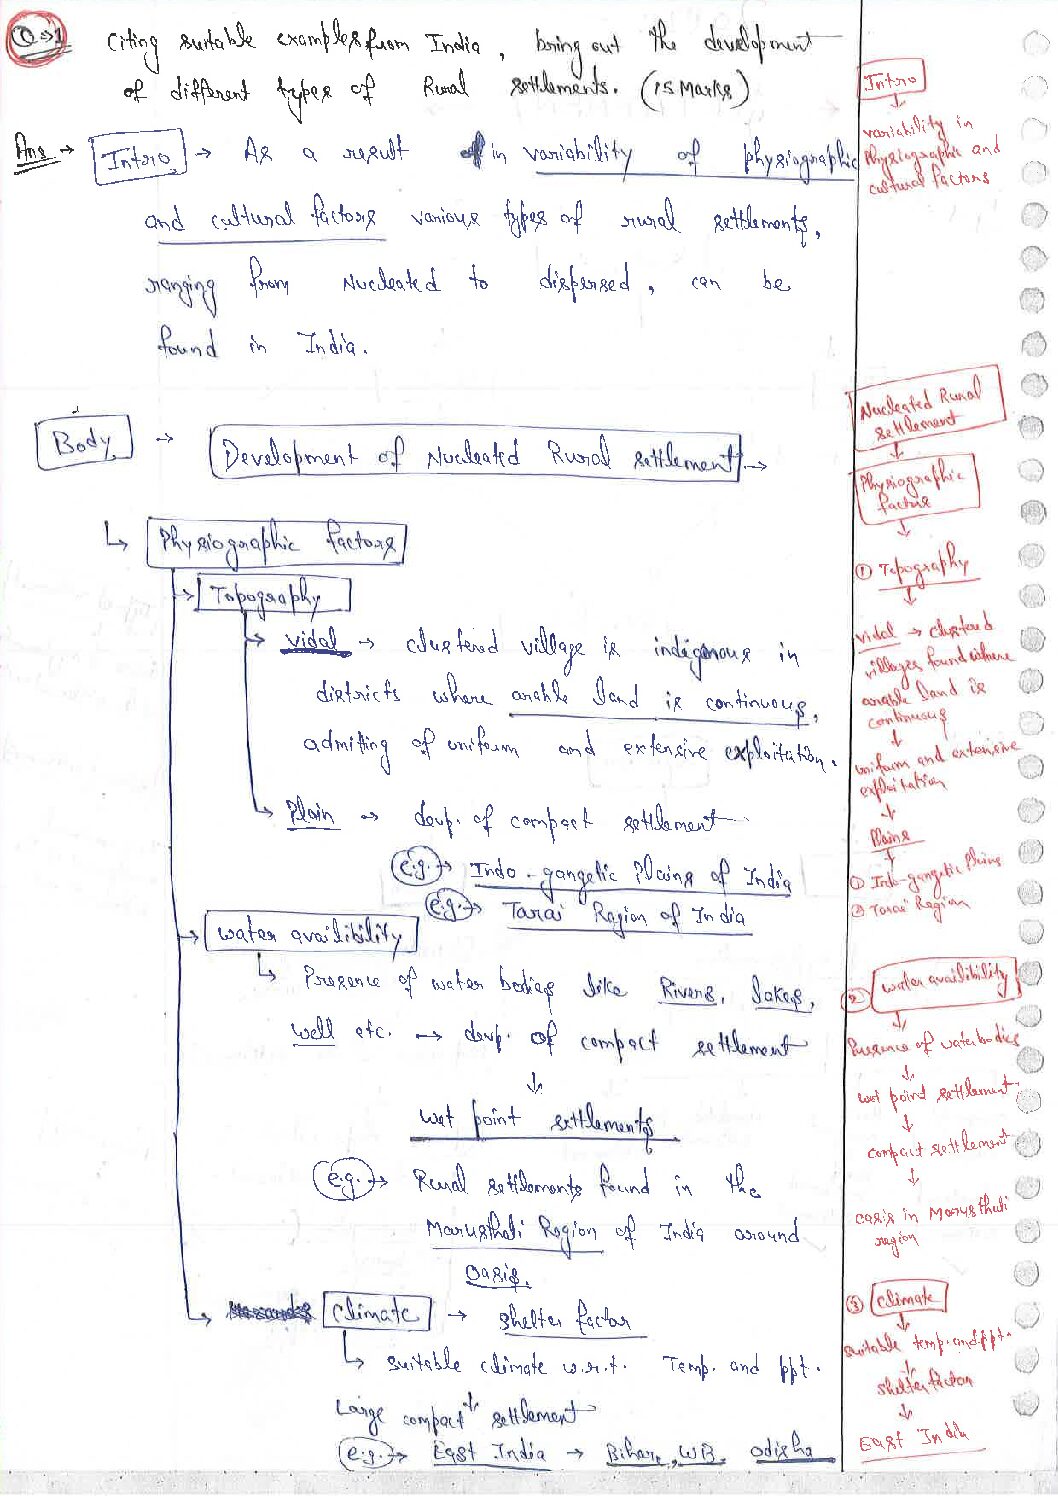 Q→1 Citing suitable examples from India, bring out the development
of different types of Rural settlements. (15 Marks)
Ans → Intro → As a result in variability of physiographic
and cultural factors various types of rural settlements,
ranging from Nucleated to dispersed, can be
found in India.
Body → Development of Nucleated Rural settlement →
↳ Physiographic factors
→ Topography
→ vidal → clustered village is indigenous in
districts where arable land is continuous,
admitting of uniform and extensive exploitation.
→ Plain → devp. of compact settlement
e.g. → Indo-gangetic Plains of India
e.g. → Tarai Region of India
→ water availibility
↳ Presence of water bodies like Rivers, lakes,
well etc. → devp. of compact settlement
↓
wet point settlements
e.g. → Rural settlements found in the
Marusthali Region of India around
oasis.
→ climate → shelter factor
↳ suitable climate w.r.t. Temp. and ppt.
↓
Large compact settlement
e.g. → East India → Bihar, WB, odisha
Intro
↓
variability in
Physiographic and
cultural factors
Nucleated Rural
settlement
↓
Physiographic
factors
↓
① Topography
↓
vidal → clustered
villages found where
arable land is
continuous
↓
uniform and extensive
exploitation
↓
Plains
↓
① Indo-gangetic Plains
② Tarai Region
② water availibility
↓
Presence of water bodies
↓
wet point settlement
↓
compact settlement
↓
oasis in Marusthali
region
③ climate
↓
suitable temp. and ppt.
↓
shelter factor
↓
East India